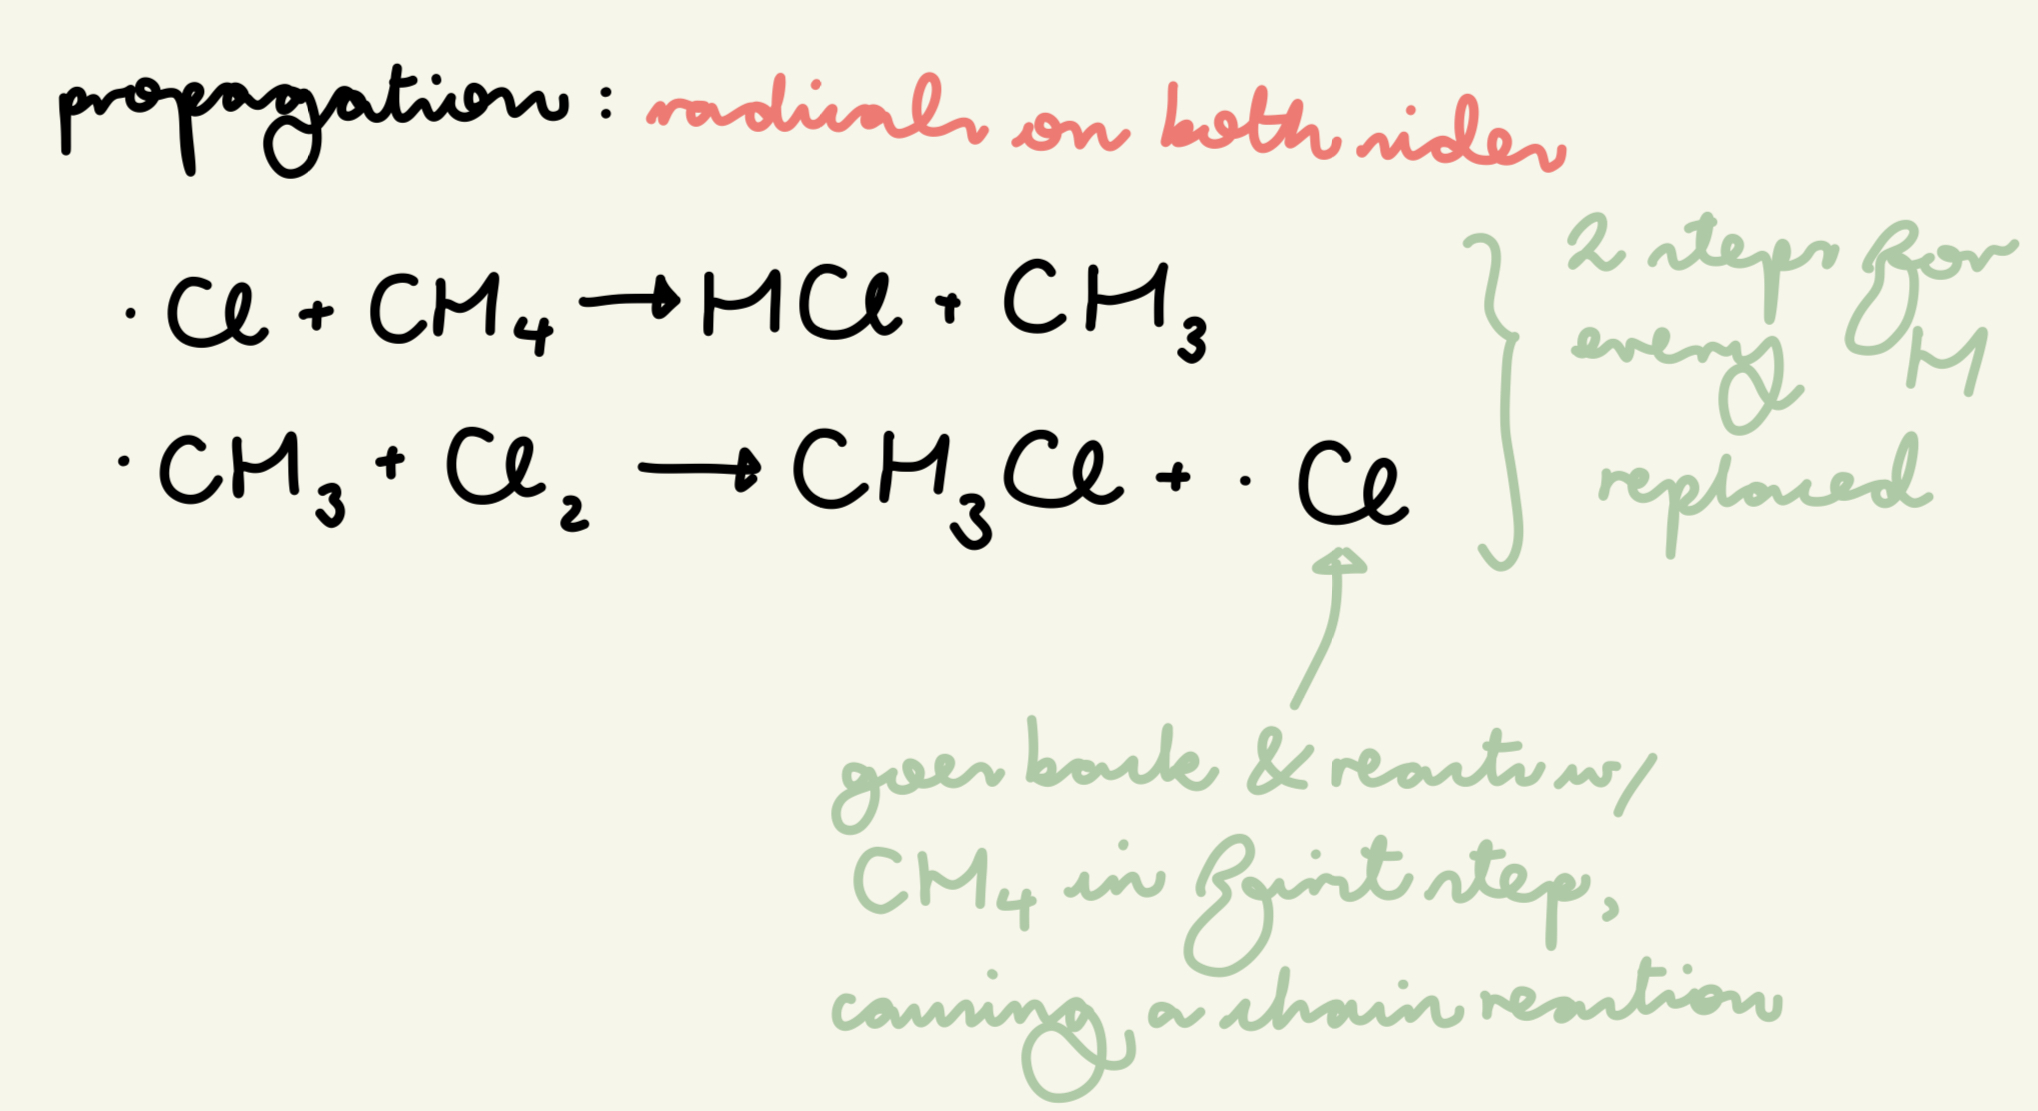 propagation: radicals on both sides
·Cl + CH₄ → HCl + CH₃
·CH₃ + Cl₂ → CH₃Cl + ·Cl
2 steps for
every H
replaced
goes back & reacts w/
CH₄ in first step,
causing a chain reaction